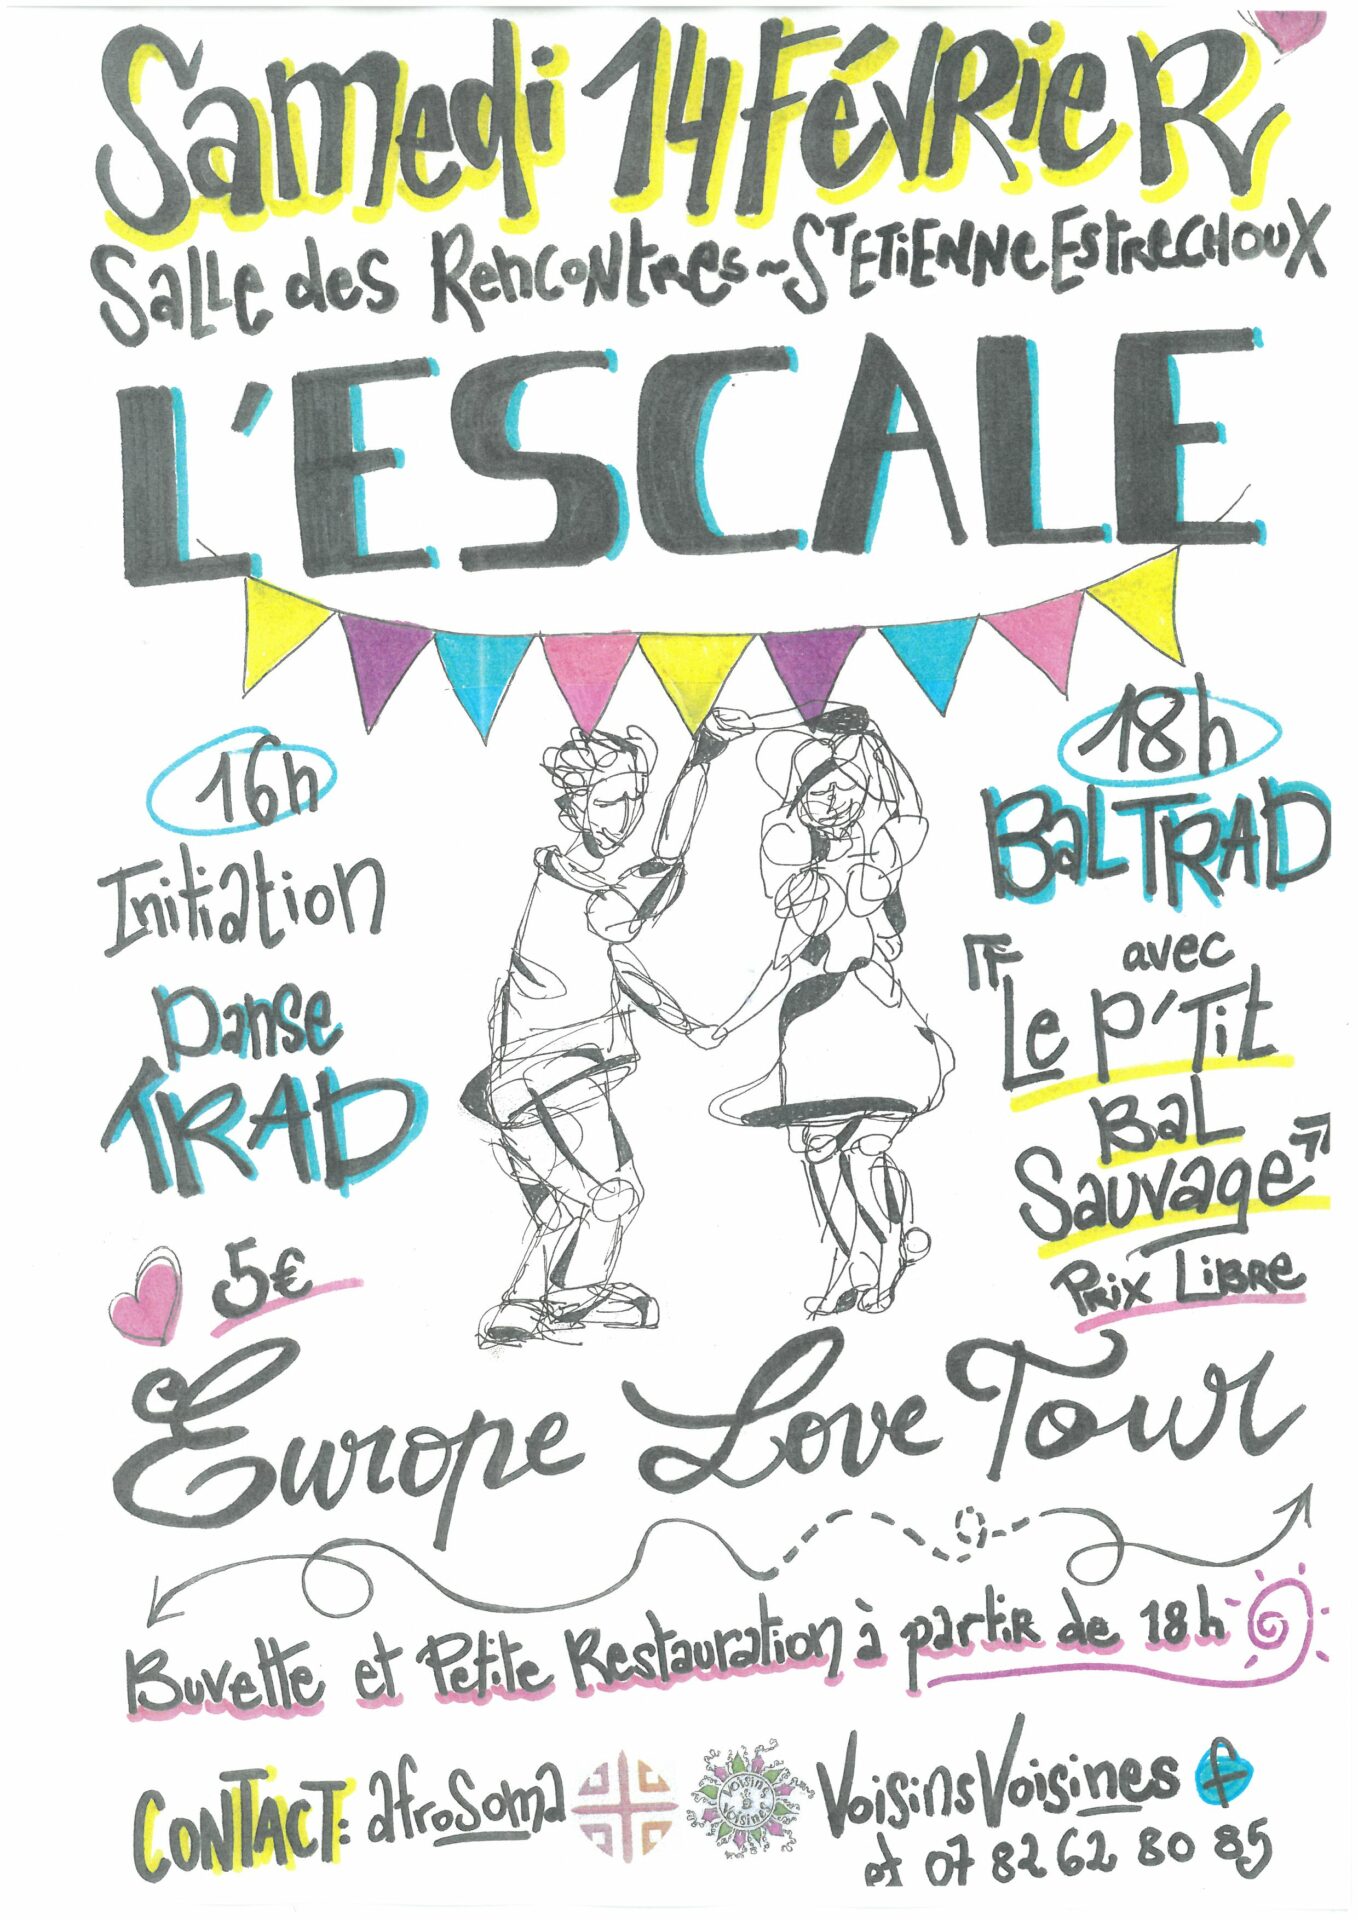 Samedi 14 Février
Salle des Rencontres ~ St Etienne Estrechoux
L'ESCALE
16h
Initiation
Danse
TRAD
5€
18h
Bal TRAD
avec
"Le P'Tit
Bal
Sauvage"
Prix Libre
Europe Love Tour
Buvette et Petite Restauration à partir de 18h
CONTACT: afroSoma
Voisins & Voisines
VoisinsVoisines f
et 07 82 62 80 85